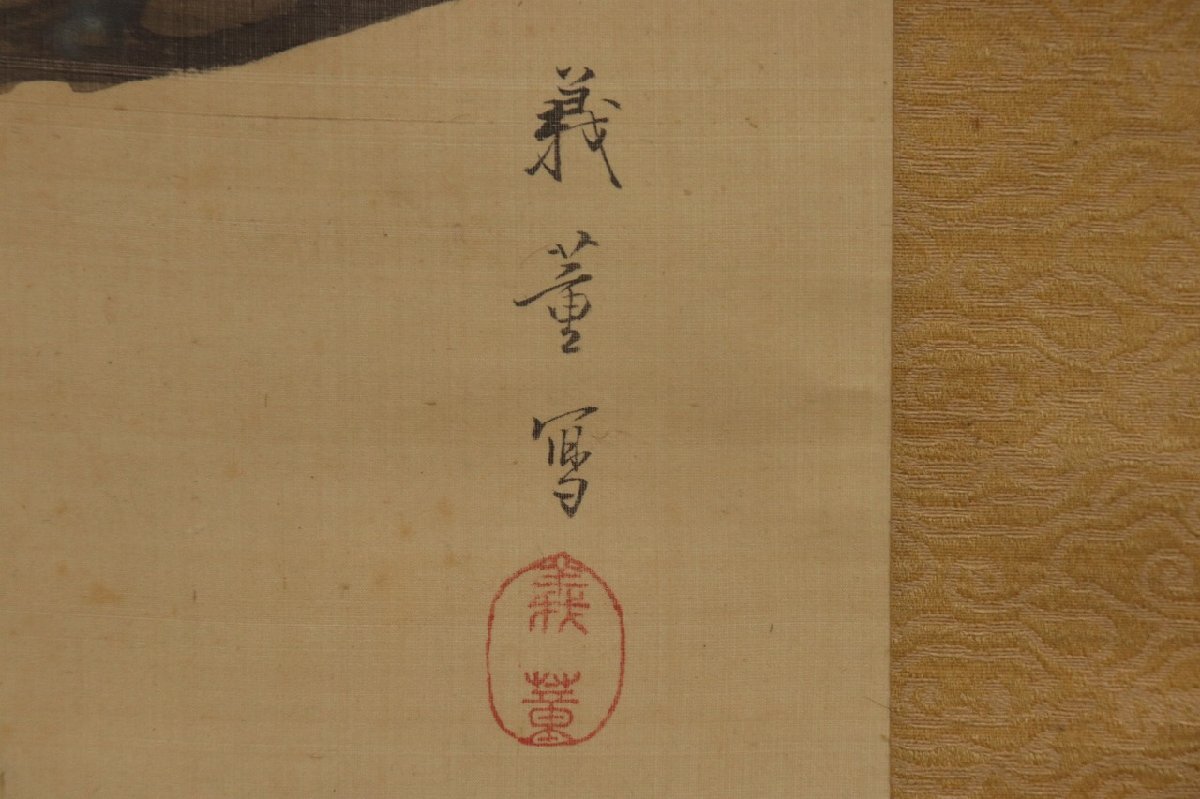 義董寫
義董